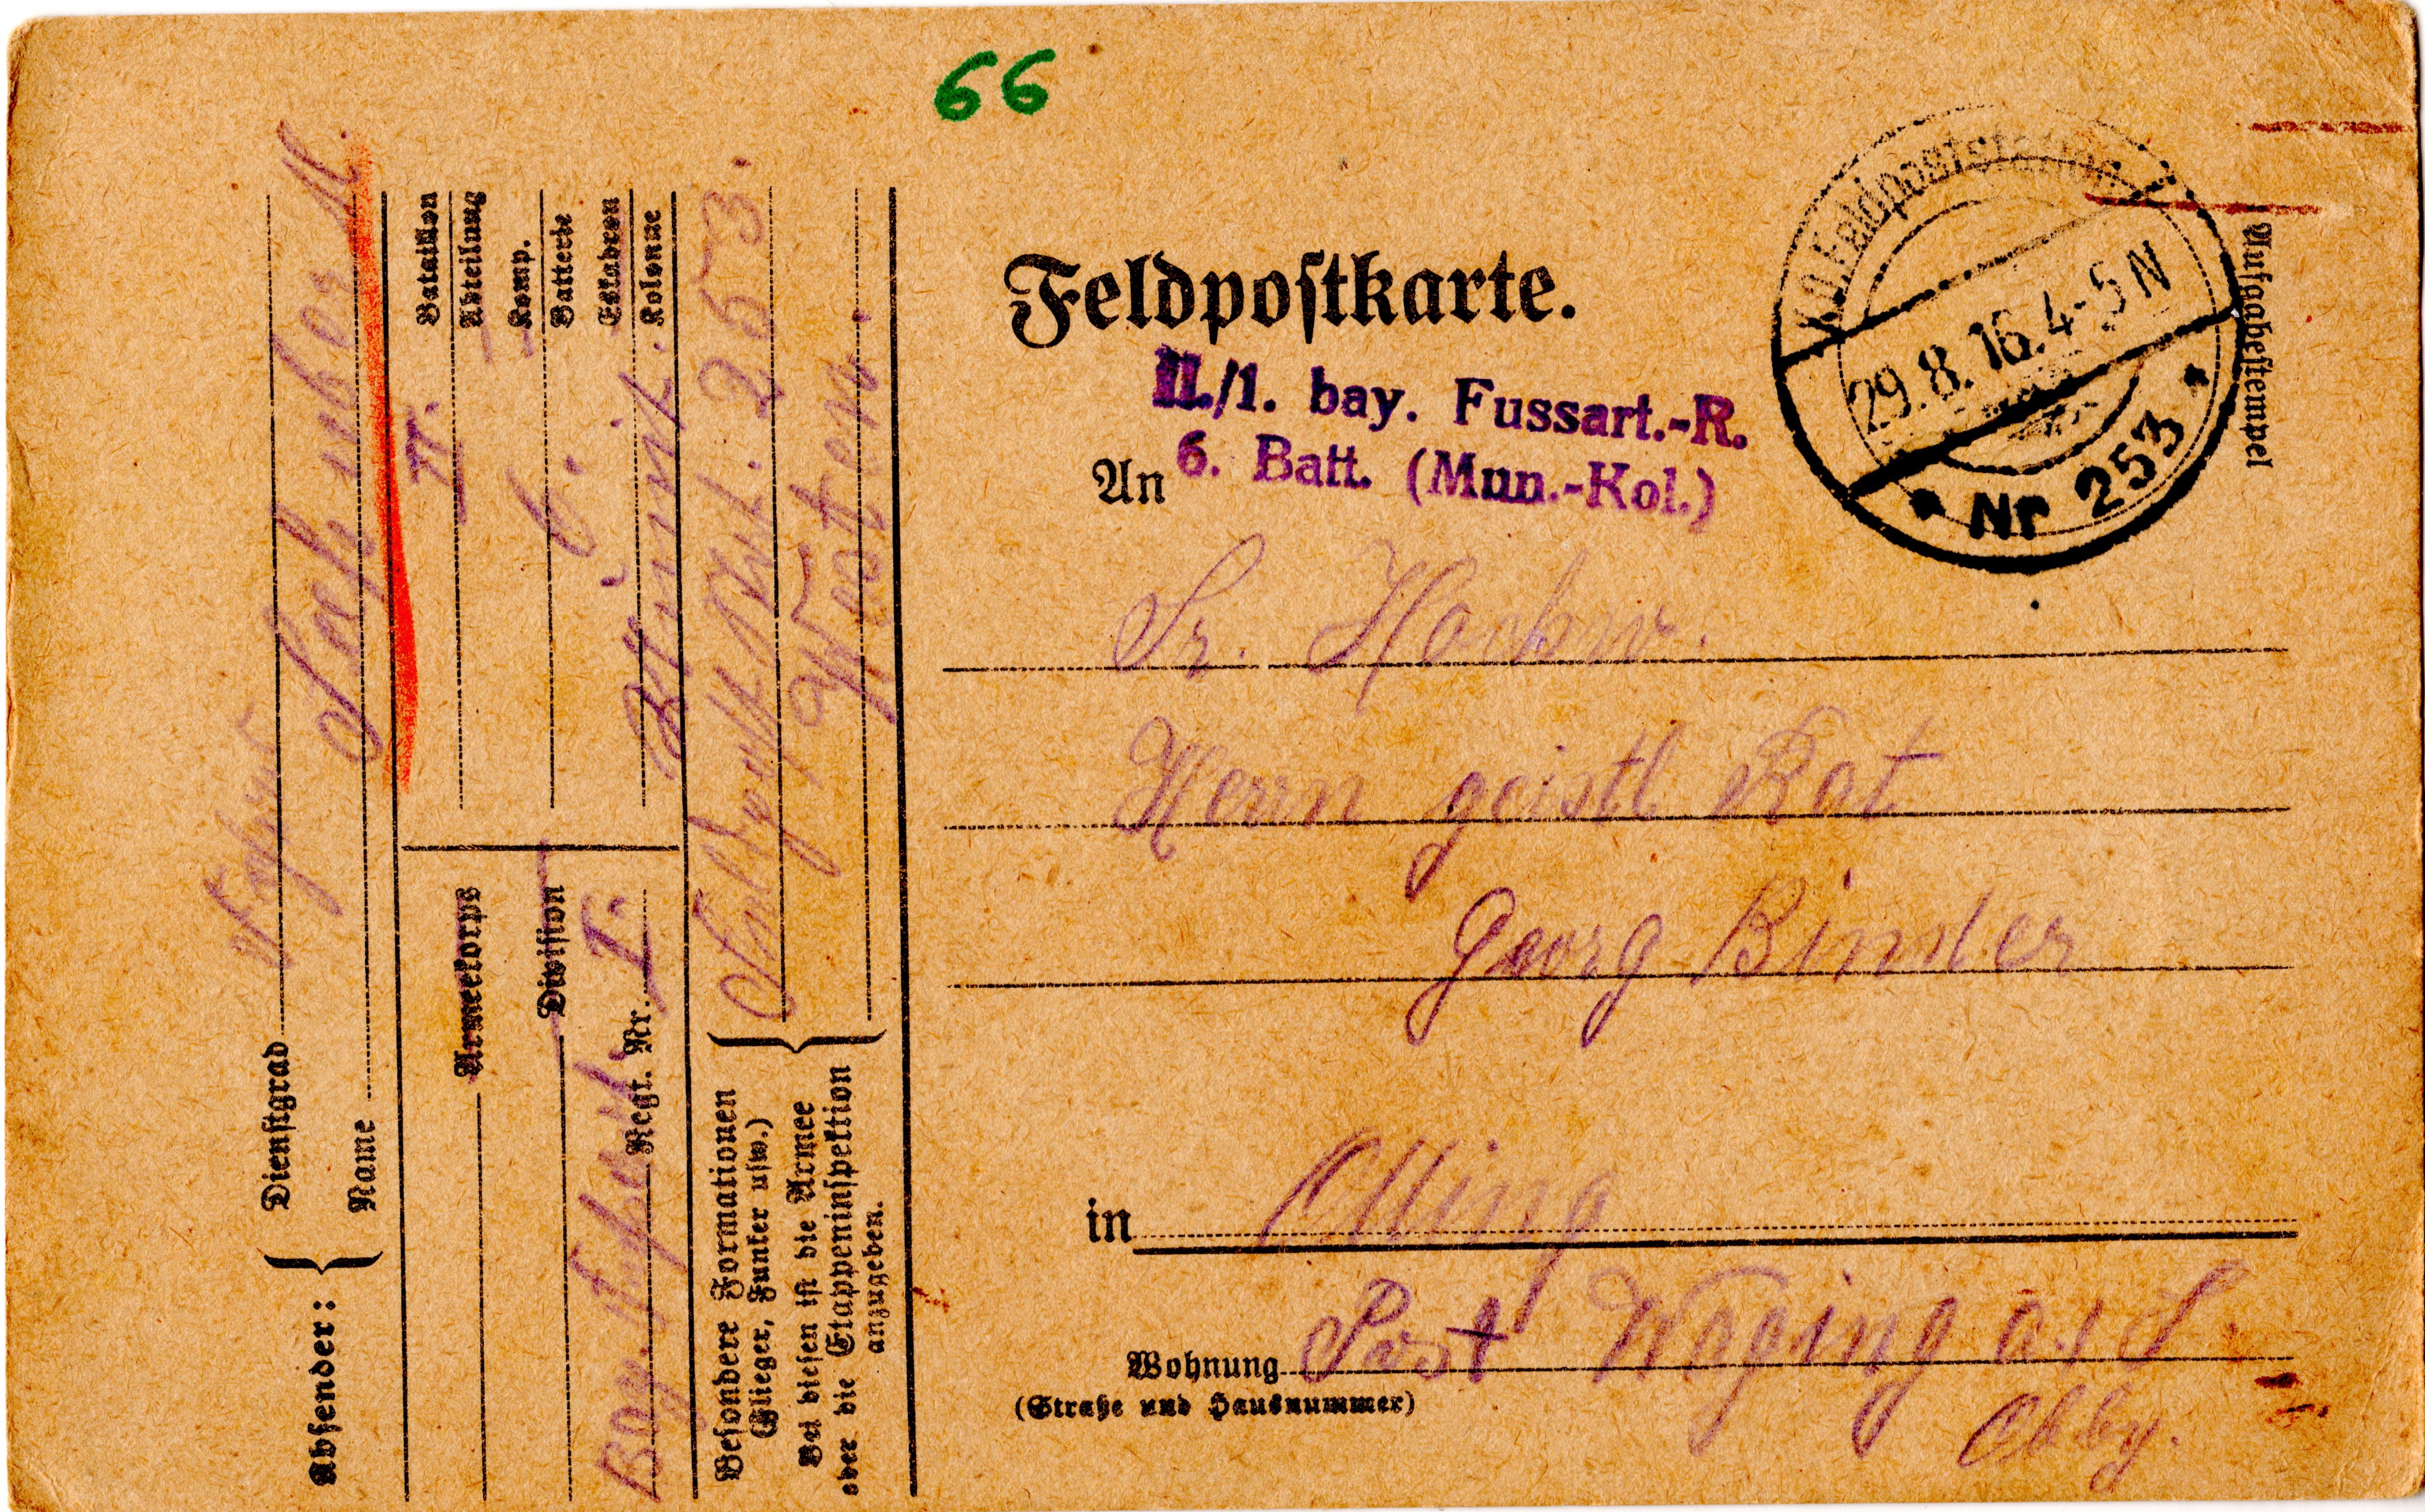 66
Feldpostkarte.
II./1. bay. Fussart.-R.
6. Batt. (Mun.-Kol.)
An
K.D. Feldpoststation
29.8.16. 4-5 N
* Nr 253 *
Aufgabestempel
Sr. Hochw.
Herrn geistl Rat
Georg Binder
in Otting
Wohnung Post Waging a. S
(Straße und Hausnummer)
Obby.
Absender:
Dienstgrad
Name
Bataillon
II. Abteilung
Komp.
6. Batterie
Eskadron
Munit. Kolonne
Armeekorps
Division
Bay. Fußart. Regt. Nr. I.
Besondere Formationen
(Flieger, Funker usw.)
Bei diesen ist die Armee
oder die Etappeninspektion
anzugeben.
Feldpost Stat. 253.
Westen.